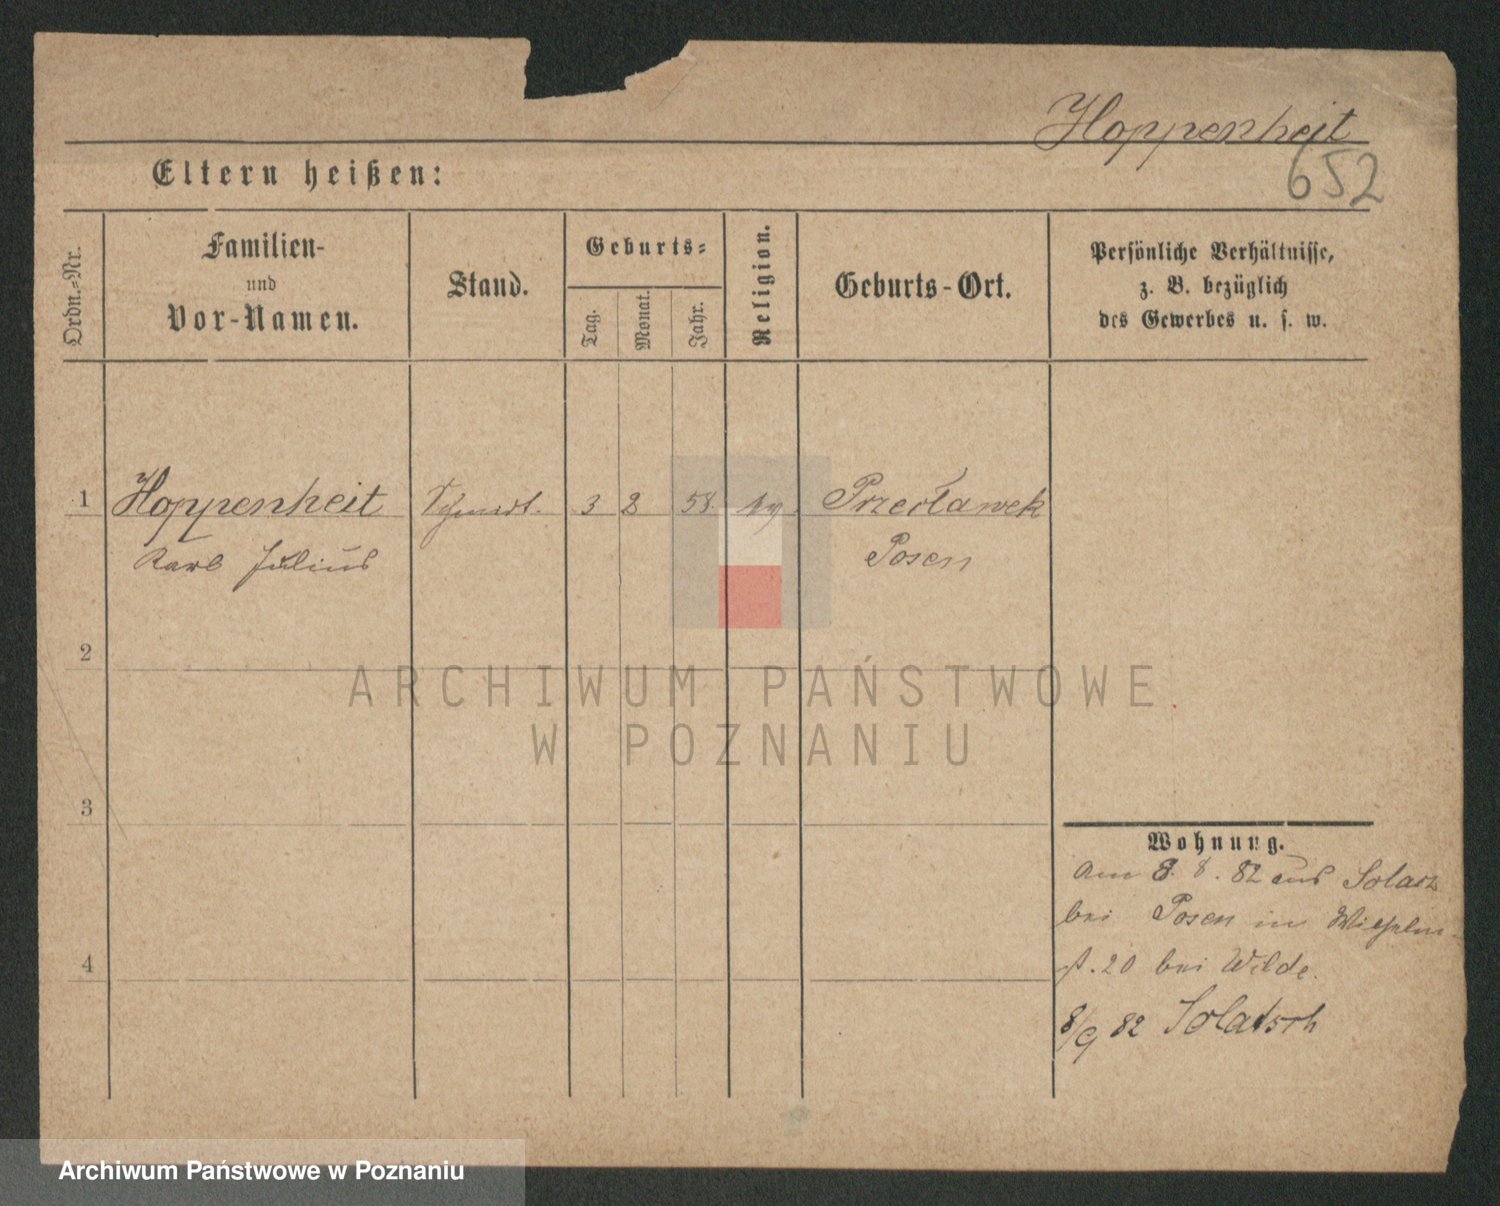 Hoppenheit
652
Eltern heißen:
Ordn.-Nr.
Familien-
und
Vor-Namen.
Stand.
Geburts-
Tag.
Monat.
Jahr.
Religion.
Geburts-Ort.
Persönliche Verhältnisse,
z. B. bezüglich
des Gewerbes u. s. w.
1 Hoppenheit 3 2 58. Przecławek
Karl Julius Posen
2
3
4
Wohnung.
am 8. 8. 82 aus Solacz
bei Posen in Wilhelm-
st. 20 bei Wilde.
8/9 82 Solatsch
ARCHIWUM PAŃSTWOWE
W POZNANIU
Archiwum Państwowe w Poznaniu